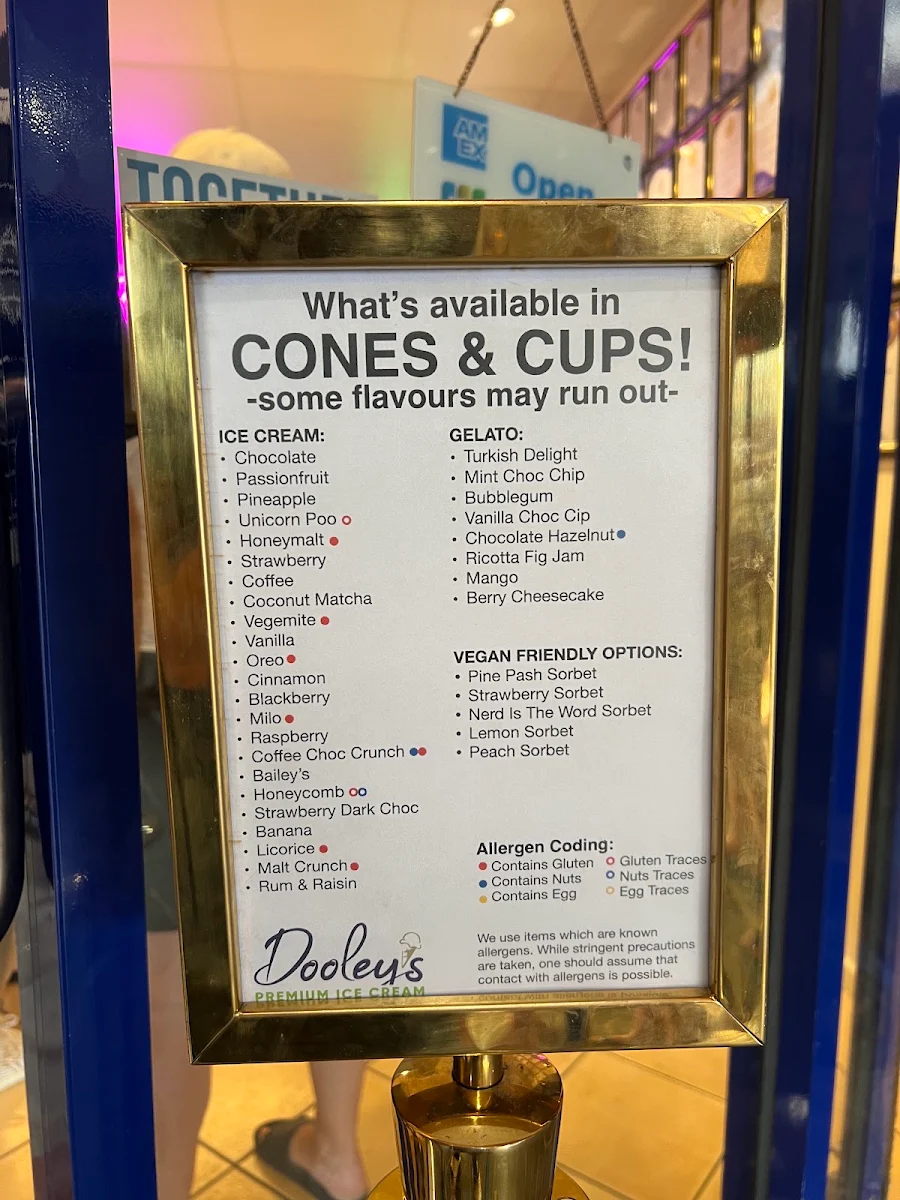 TOGETHE
AM
EX
Open
What's available in
CONES & CUPS!
-some flavours may run out-
ICE CREAM:
• Chocolate
• Passionfruit
• Pineapple
• Unicorn Poo
• Honeymalt
• Strawberry
• Coffee
• Coconut Matcha
• Vegemite
• Vanilla
• Oreo
• Cinnamon
• Blackberry
• Milo
• Raspberry
• Coffee Choc Crunch
• Bailey's
• Honeycomb
• Strawberry Dark Choc
• Banana
• Licorice
• Malt Crunch
• Rum & Raisin
GELATO:
• Turkish Delight
• Mint Choc Chip
• Bubblegum
• Vanilla Choc Cip
• Chocolate Hazelnut
• Ricotta Fig Jam
• Mango
• Berry Cheesecake
VEGAN FRIENDLY OPTIONS:
• Pine Pash Sorbet
• Strawberry Sorbet
• Nerd Is The Word Sorbet
• Lemon Sorbet
• Peach Sorbet
Allergen Coding:
Contains Gluten
Contains Nuts
Contains Egg
Gluten Traces
Nuts Traces
Egg Traces
We use items which are known
allergens. While stringent precautions
are taken, one should assume that
contact with allergens is possible.
Dooley's
PREMIUM ICE CREAM